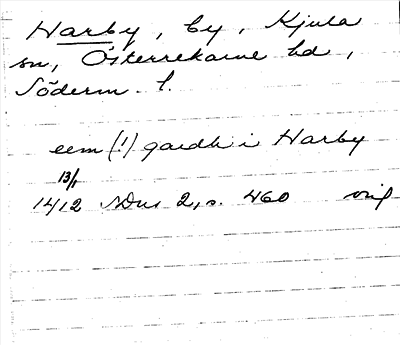 Harby, by, Kjula
sn, Österrekarne hd,
Söderm. l.
eem (!) gardh i Harby
13/1
1412 SDns 2, s. 460 orig